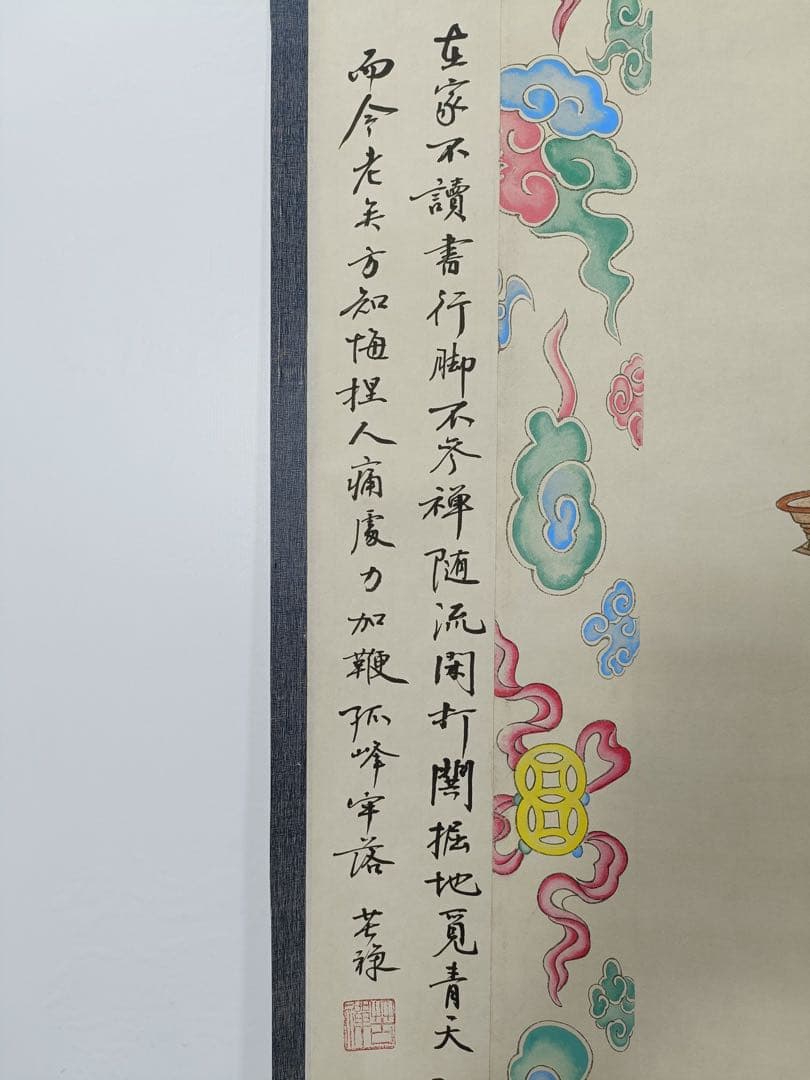 在家不讀書行脚不参禅随流闲打鬨掘地覓青天
而今老矣方知悔捏人痛處力加鞭孤峰牢落